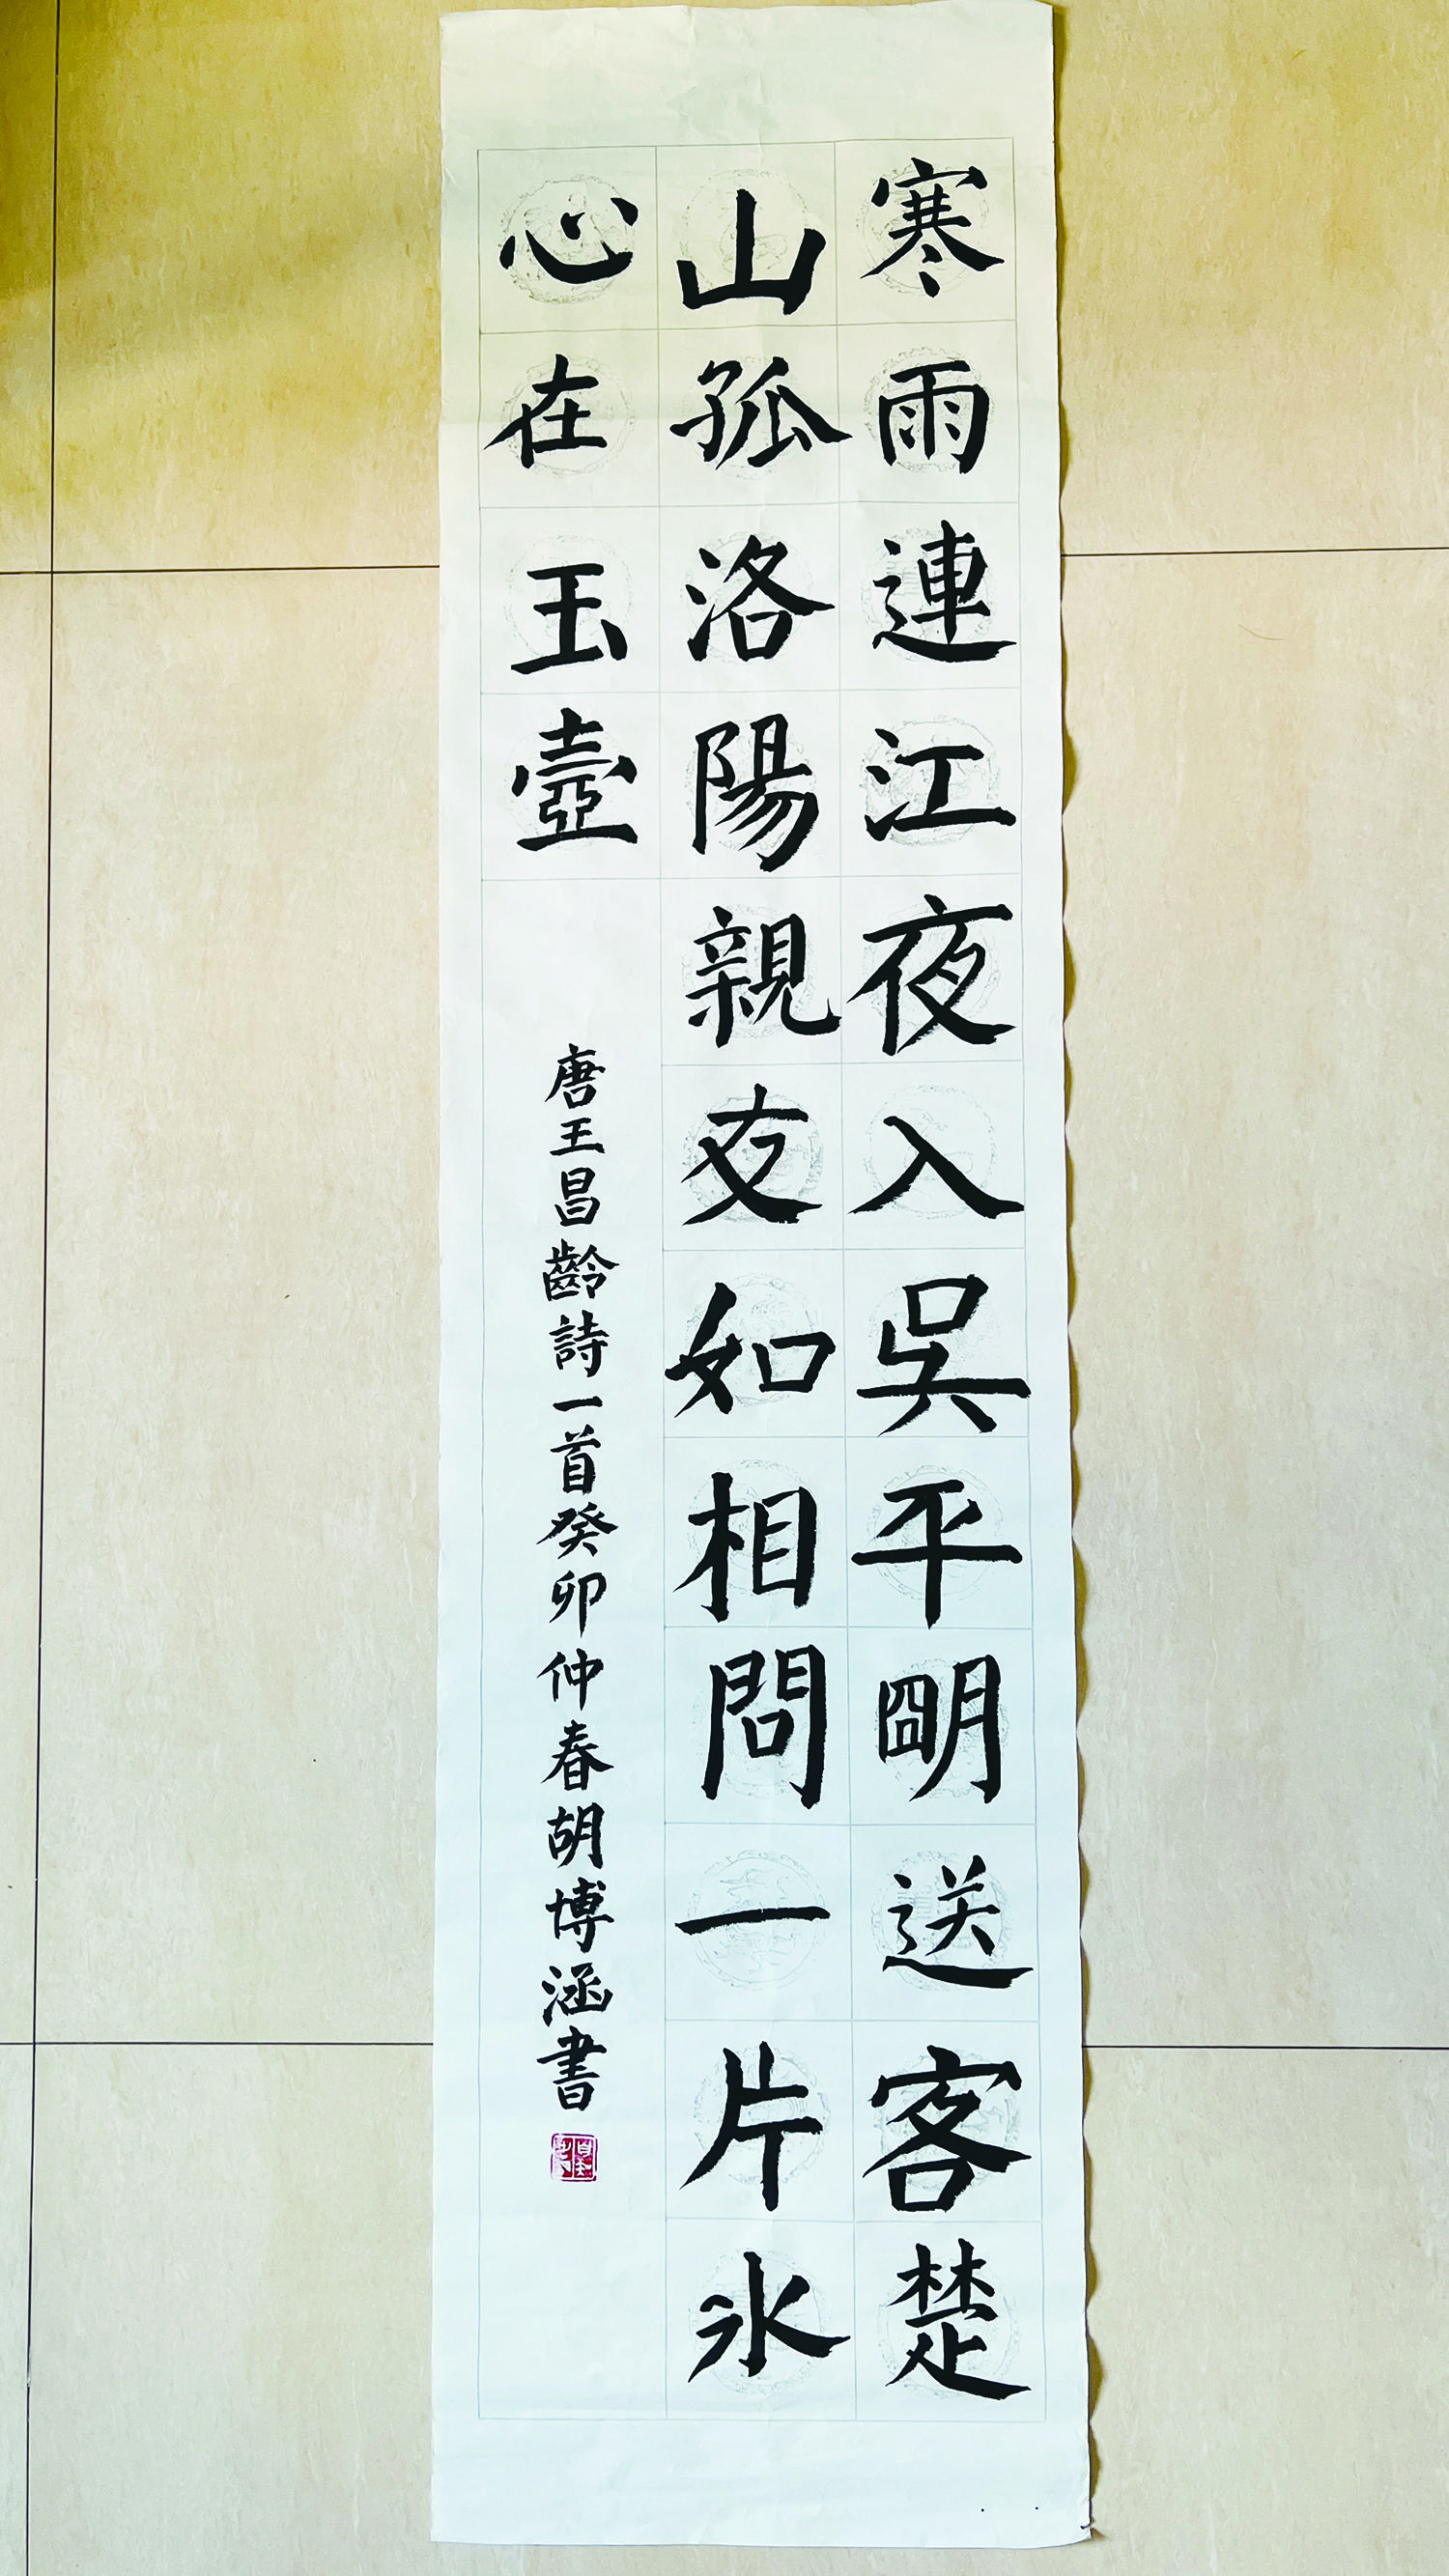 寒雨連江夜入吳平明送客楚
山孤洛陽親友如相問一片氷
心在玉壺
唐王昌齡詩一首癸卯仲春胡博涵書